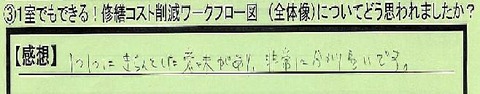 ③1室でもできる!修繕コスト削減ワークフロー図(全体像)についてどう思われましたか?
【感想】1つ1つにきちんとした意味があり、非常に分かり易いです。